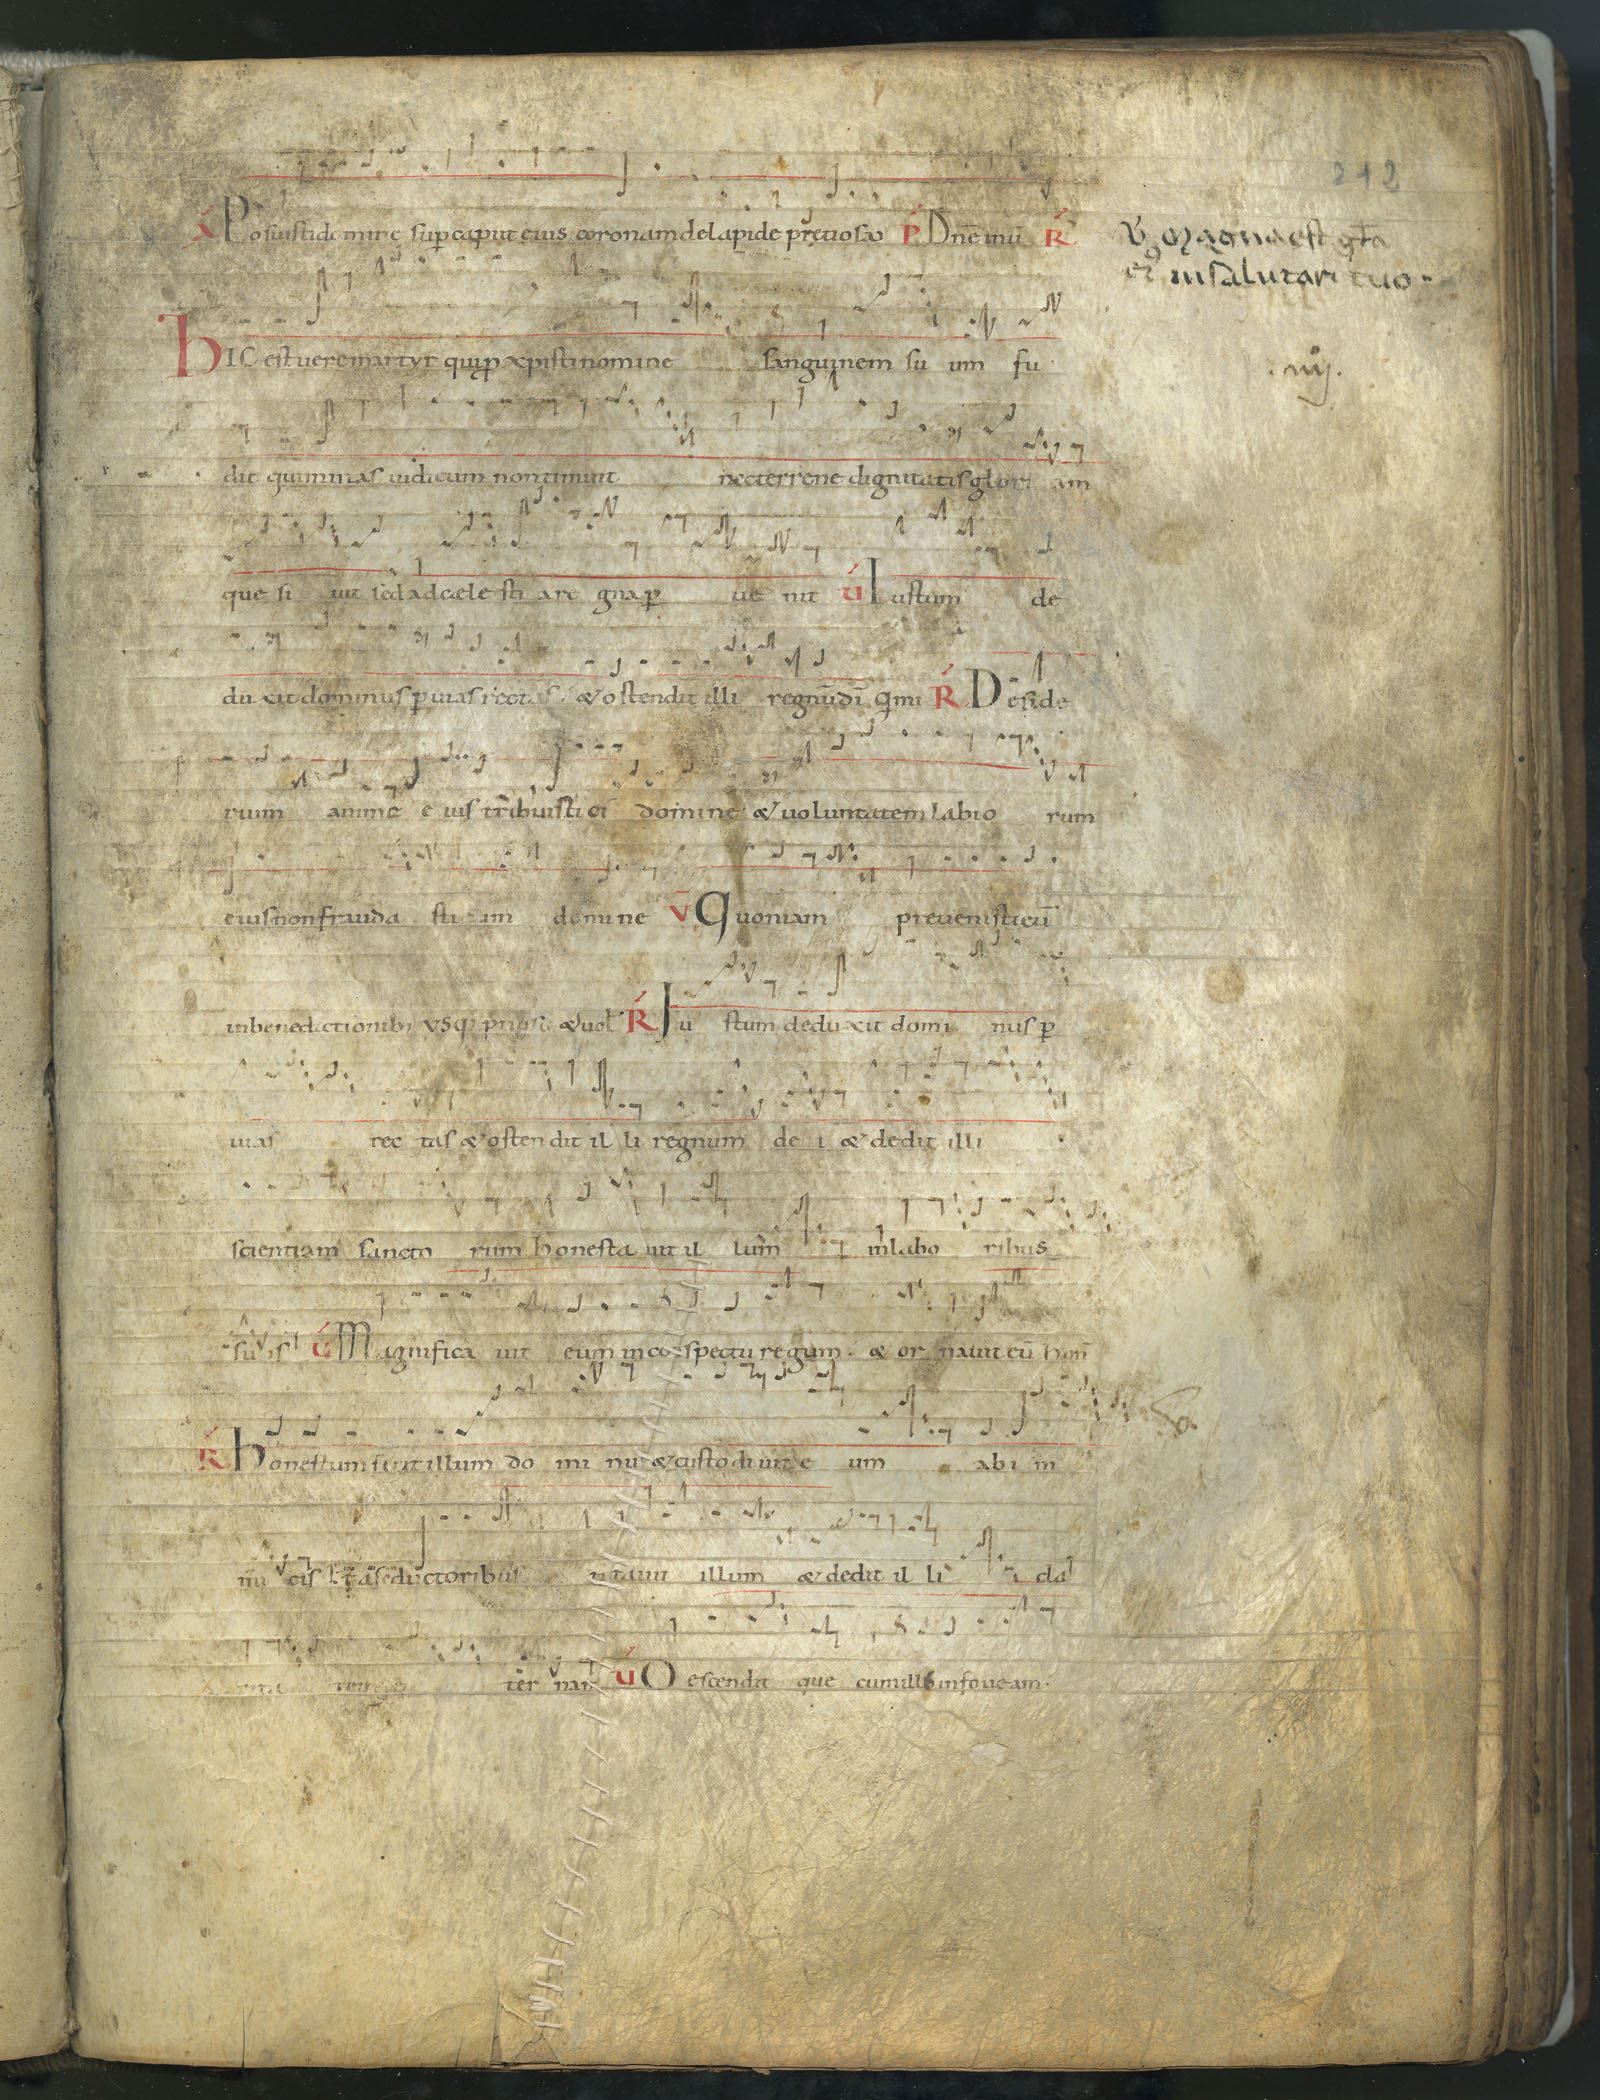 212
Posuisti domine sup caput eius coronam de lapide pretioso P Dnē inū R
V Magna est gła
ei in salutari tuo
hIC est vere martyr qui p xpisti nomine sanguinem su um fu
.iiij.
dit qui minas iudicum non timuit nec terrene dignitatis glori am
que si uit sed ad cele sti a re gna p ue nit V Iustum de
du xit dominus p uias rectas & ostendit illi regnū dī Qi mi R Deside
rium anime e ius tribuisti ei domine & uoluntatem labio rum
eius non frauda sti eum domine V Quoniam preuenisti eū
in benedictionibus & uol R Iu stum deduxit domi nus p
uias rec tas & osten dit il li regnum de i & dedit illi
scientiam sancto rum honesta uit il lum in labo ribus
su is V Magnifica uit eum in conspectu regum & or nauit eū hon
R honestum fecit illum do mi nus & custodiuit e um ab i ni
mi cis & a seductoribus tutauit illum & dedit il li cla
ter nam V Descendit que cum illo in foueam